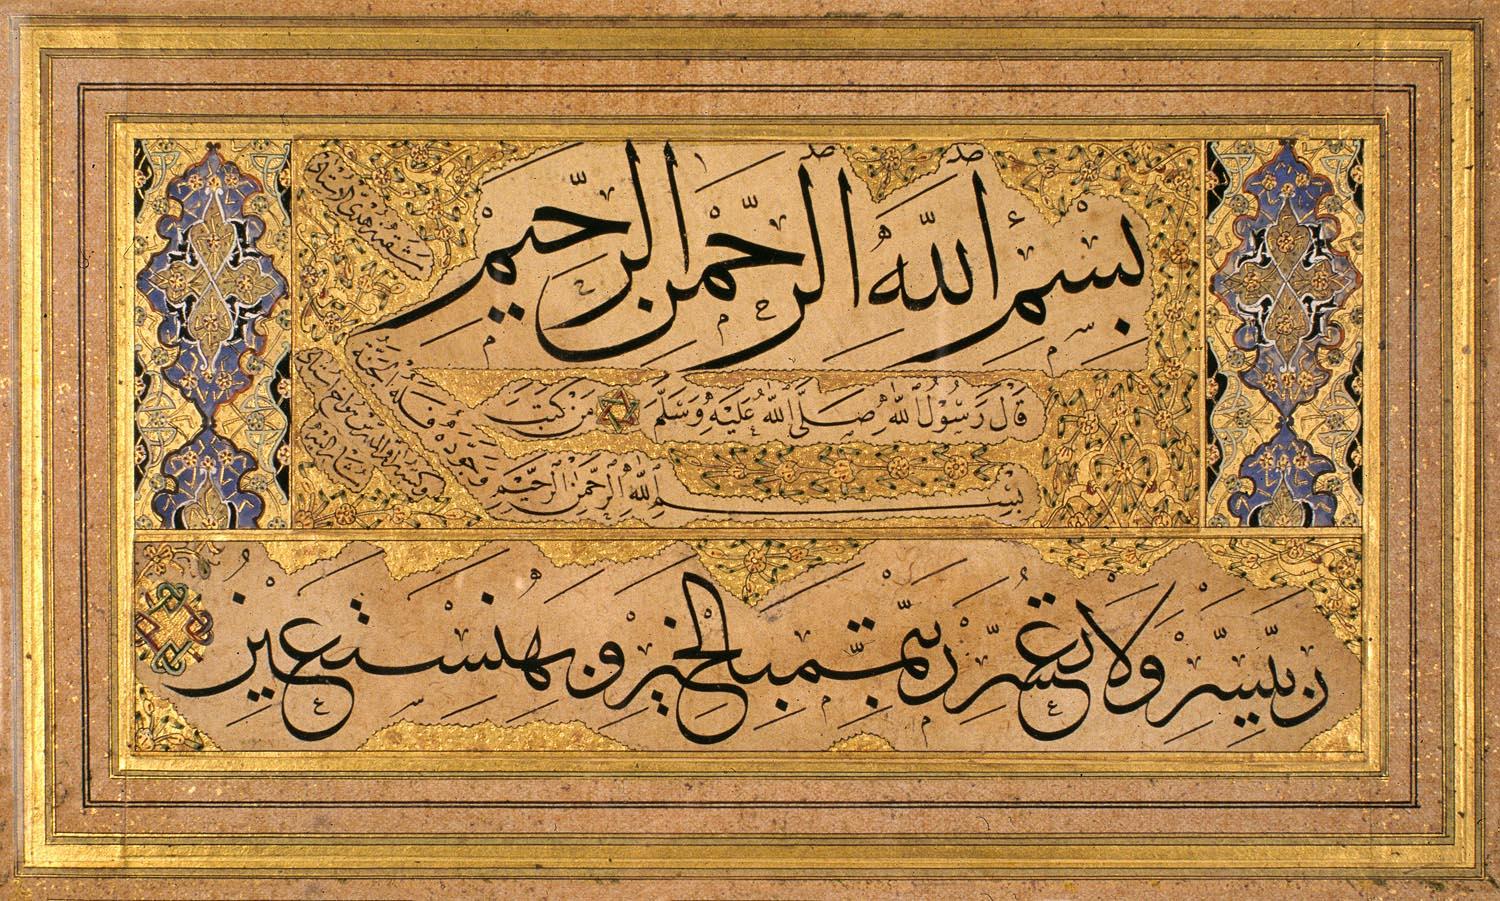 بِسْمِ اللَّهِ الرَّحْمٰنِ الرَّحِيمِ
قَالَ رَسُولُ اللَّهِ صَلَّى اللَّهُ عَلَيْهِ وَسَلَّمَ مَنْ كَتَبَ
بِسْمِ اللَّهِ الرَّحْمٰنِ الرَّحِيمِ وَجَوَّدَهُ فَلَهُ الْجَنَّةُ
رَبِّ يَسِّرْ وَلَا تُعَسِّرْ رَبِّ تَمِّمْ بِالْخَيْرِ وَبِهِ نَسْتَعِينُ